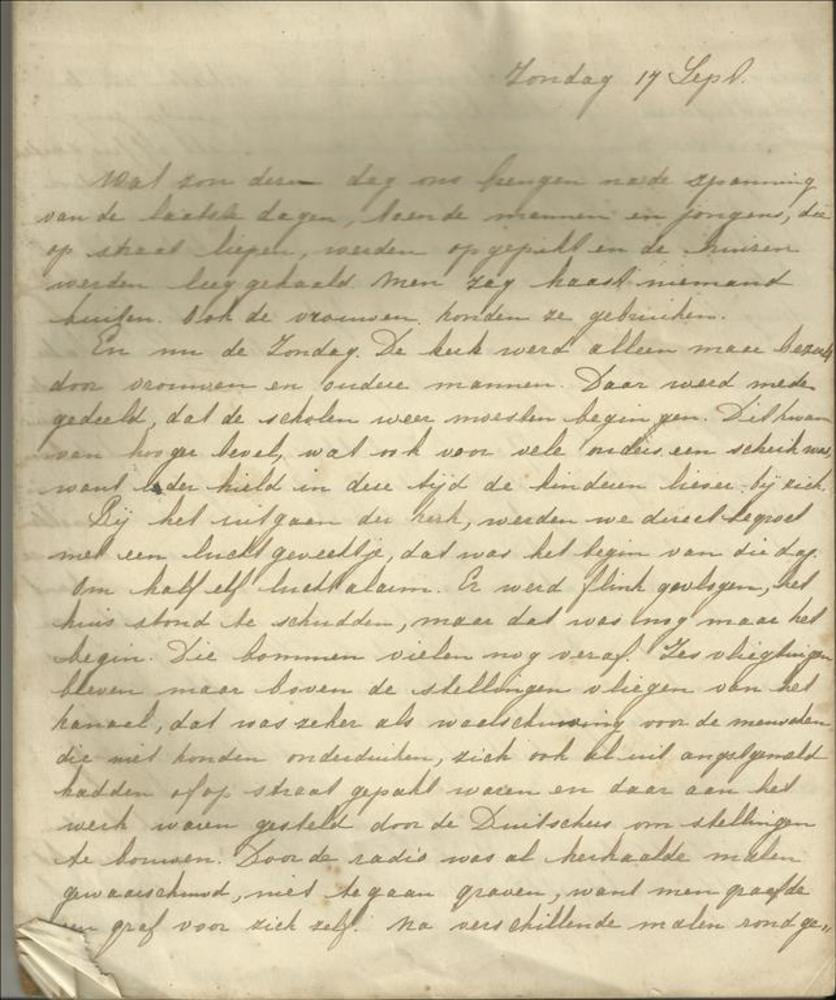 Zondag 17 Sept.
Wat zou deze dag ons brengen na de spanning
van de laatste dagen, toen de mannen en jongens, die
op straat liepen, werden opgepakt en de huizen
werden leeggehaald. Men zag haast niemand
buiten. Ook de vrouwen konden ze gebruiken.
En nu de Zondag. De kerk werd alleen maar bezocht
door vrouwen en oudere mannen. Daar werd mede
gedeeld, dat de scholen weer moesten beginnen. Dit kwam
van hooger bevel, wat ook voor vele ouders een schrik was,
want ieder hield in deze tijd de kinderen liever bij zich.
Bij het uitgaan der kerk, werden we direct begroet
met een luchtgevechtje, dat was het begin van die dag.
Om half elf luchtalarm. Er werd flink gevlogen, het
huis stond te schudden, maar dat was nog maar het
begin. Die bommen vielen nog veraf. Zes vliegtuigen
bleven maar boven de stellingen vliegen van het
kanaal, dat was zeker als waarschuwing voor de menschen
die niet konden onderduiken, zich ook al uit angst gemeld
hadden of op straat gepakt waren en daar aan het
werk waren gesteld door de Duitschers om stellingen
te bouwen. Door de radio was al herhaalde malen
gewaarschuwd, niet te gaan graven, want men graafde
een graf voor zich zelf. Na verschillende malen rond ge„